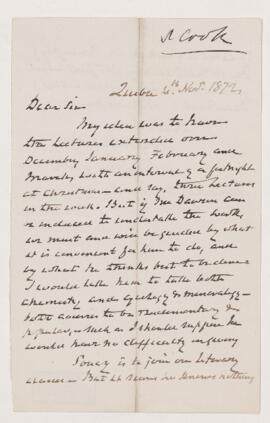 J Cook
Quebec 4th Novr. 1872
Dear Sir
My idea was to have
the Lectures extended over
December January February and
March with an interval of a fortnight
at Christmas and say, three lectures
in the week. But if Mr Dawson can
be induced to undertake the work,
we must and will be guided by what
is convenient for him to do, and
by what he thinks best to be done
I would like him to take both
Chemistry and Geology & mineralogy
both courses to be rudimentary &
popular, such as I should suppose he
would have no difficulty in giving
is to join our literary
But it seems he knows nothing